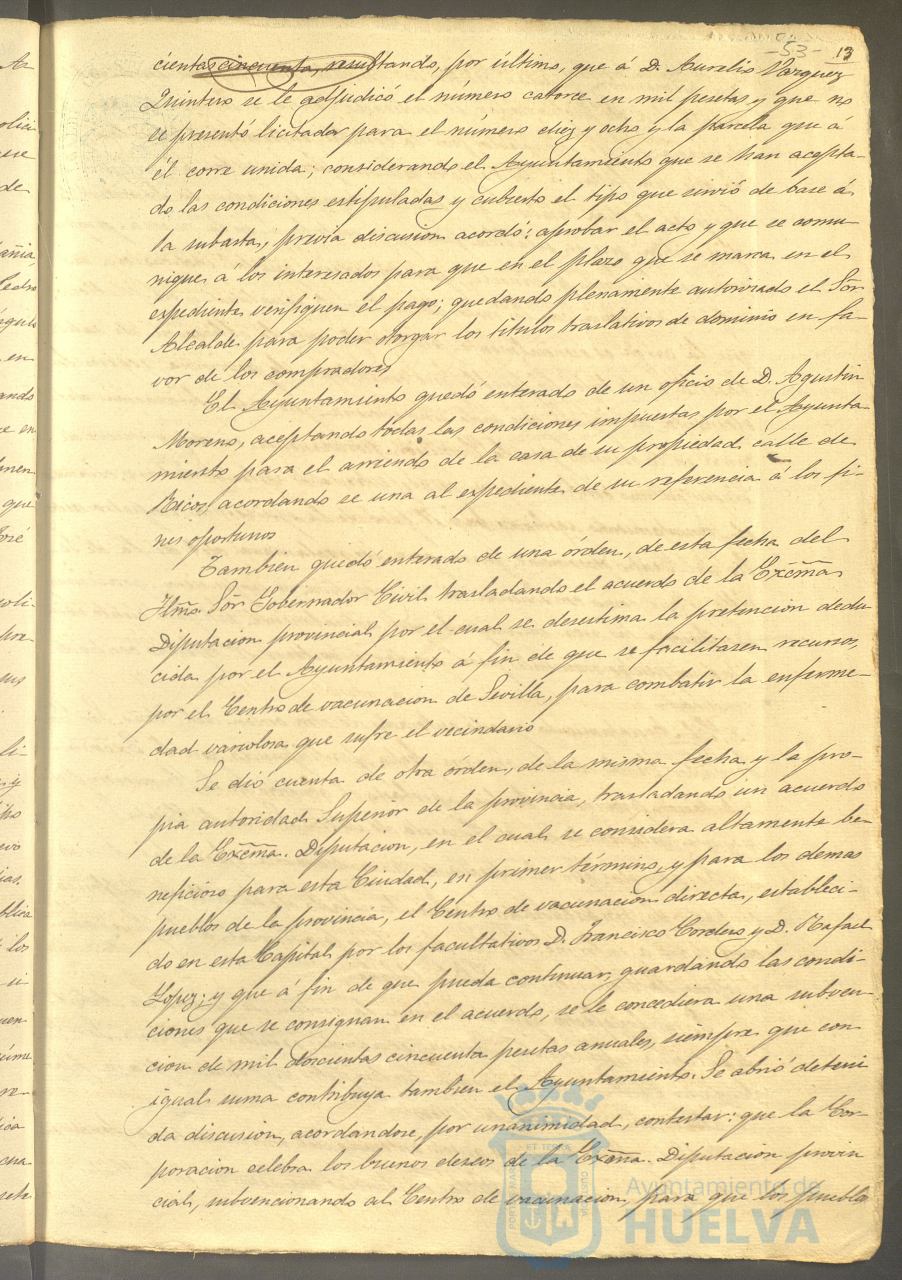 -53- 13
cientas cincuenta, resultando, por último, que á D. Aurelio Vazquez
Quintero se le adjudicó el número catorce en mil pesetas y que no
se presentó licitador para el número diez y ocho y la parcela que á
él corre unida; considerando el Ayuntamiento que se han acepta-
do las condiciones estipuladas y cubierto el tipo que sirvió de base á
la subasta, previa discusion acordó: aprobar el acto y que se comu-
nique á los interesados para que en el plazo que se marca en el
expediente verifiquen el pago; quedando plenamente autorizado el Sor
Alcalde para poder otorgar los titulos traslativos de dominio en fa-
vor de los compradores
El Ayuntamiento quedó enterado de un oficio de D. Agustin
Moreno, aceptando todas las condiciones impuestas por el Ayunta-
miento para el arriendo de la casa de su propiedad calle de
Ricos, acordando se una al expediente de su referencia á los fi-
nes oportunos
Tambien quedó enterado de una órden, de esta fecha del
Iltmo. Sor. Gobernador Civil, trasladando el acuerdo de la Excma
Diputacion provincial por el cual se desestima la pretencion dedu
cida por el Ayuntamiento á fin de que se facilitasen recursos,
por el Centro de vacunacion de Sevilla, para combatir la enferme-
dad variolosa que sufre el vecindario
Se dió cuenta de otra órden, de la misma fecha y la pro-
pia autoridad Superior de la provincia, trasladando un acuerdo
de la Excma. Diputacion, en el cual se considera altamente be-
neficioso para esta Ciudad, en primer término, y para los demas
pueblos de la provincia, el Centro de vacunacion directa, estableci-
do en esta Capital por los facultativos D. Francisco Cordero y D. Rafael
Lopez; y que á fin de que pueda continuar, guardando las condi-
ciones que se consignan en el acuerdo, se le concediera una subven-
cion de mil doscientas cincuenta pesetas anuales, siempre que con
igual suma contribuya tambien el Ayuntamiento. Se abrió deteni
da discusion, acordandose, por unanimidad, contestar: que la Cor-
poracion celebra los buenos deseos de la Excma. Diputacion provin
cial, subvencionando al Centro de vacunacion, para que los pueblos
Ayuntamiento de
HUELVA